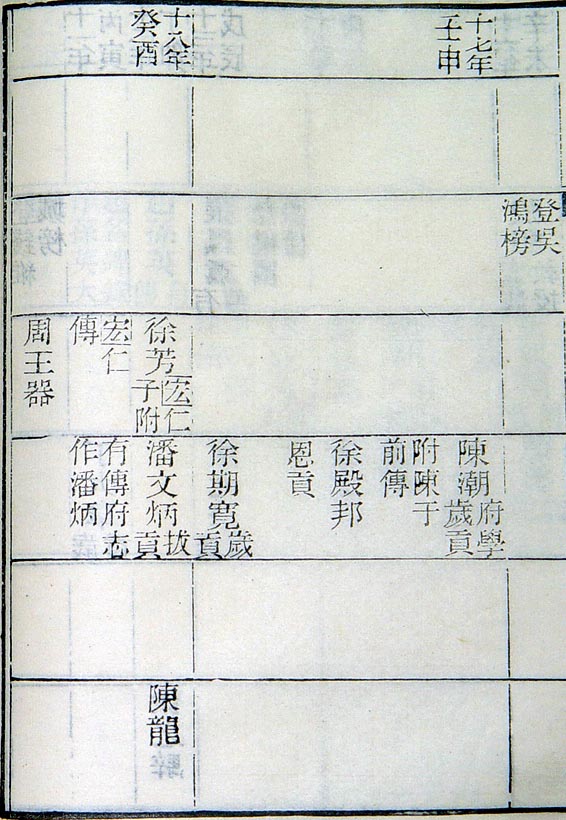 登吳
鴻榜
十七年
壬申
陳潮府學歲貢
附陳于
前傳
徐殿邦
恩貢
徐期寬歲貢
十八年
癸酉
徐芳宏仁子附
宏仁
傳
周王器
潘文炳拔貢
有傳府志
作潘炳
陳龍